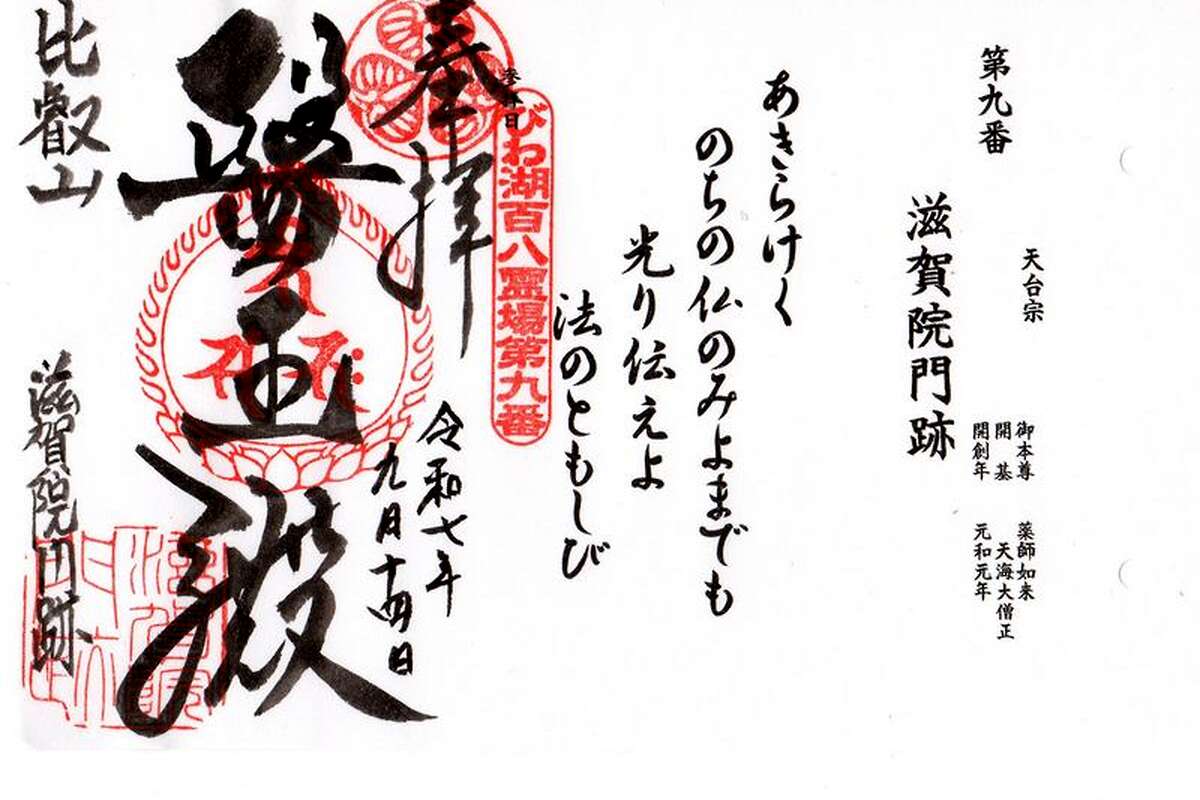 第九番
天台宗
滋賀院門跡
御本尊 薬師如来
開基 天海大僧正
開創年 元和元年
あきらけく
のちの仏のみよまでも
光り伝えよ
法のともしび
奉拝
参拝日
びわ湖百八霊場第九番
令和七年
九月十四日
醫王殿
比叡山
滋賀院門跡